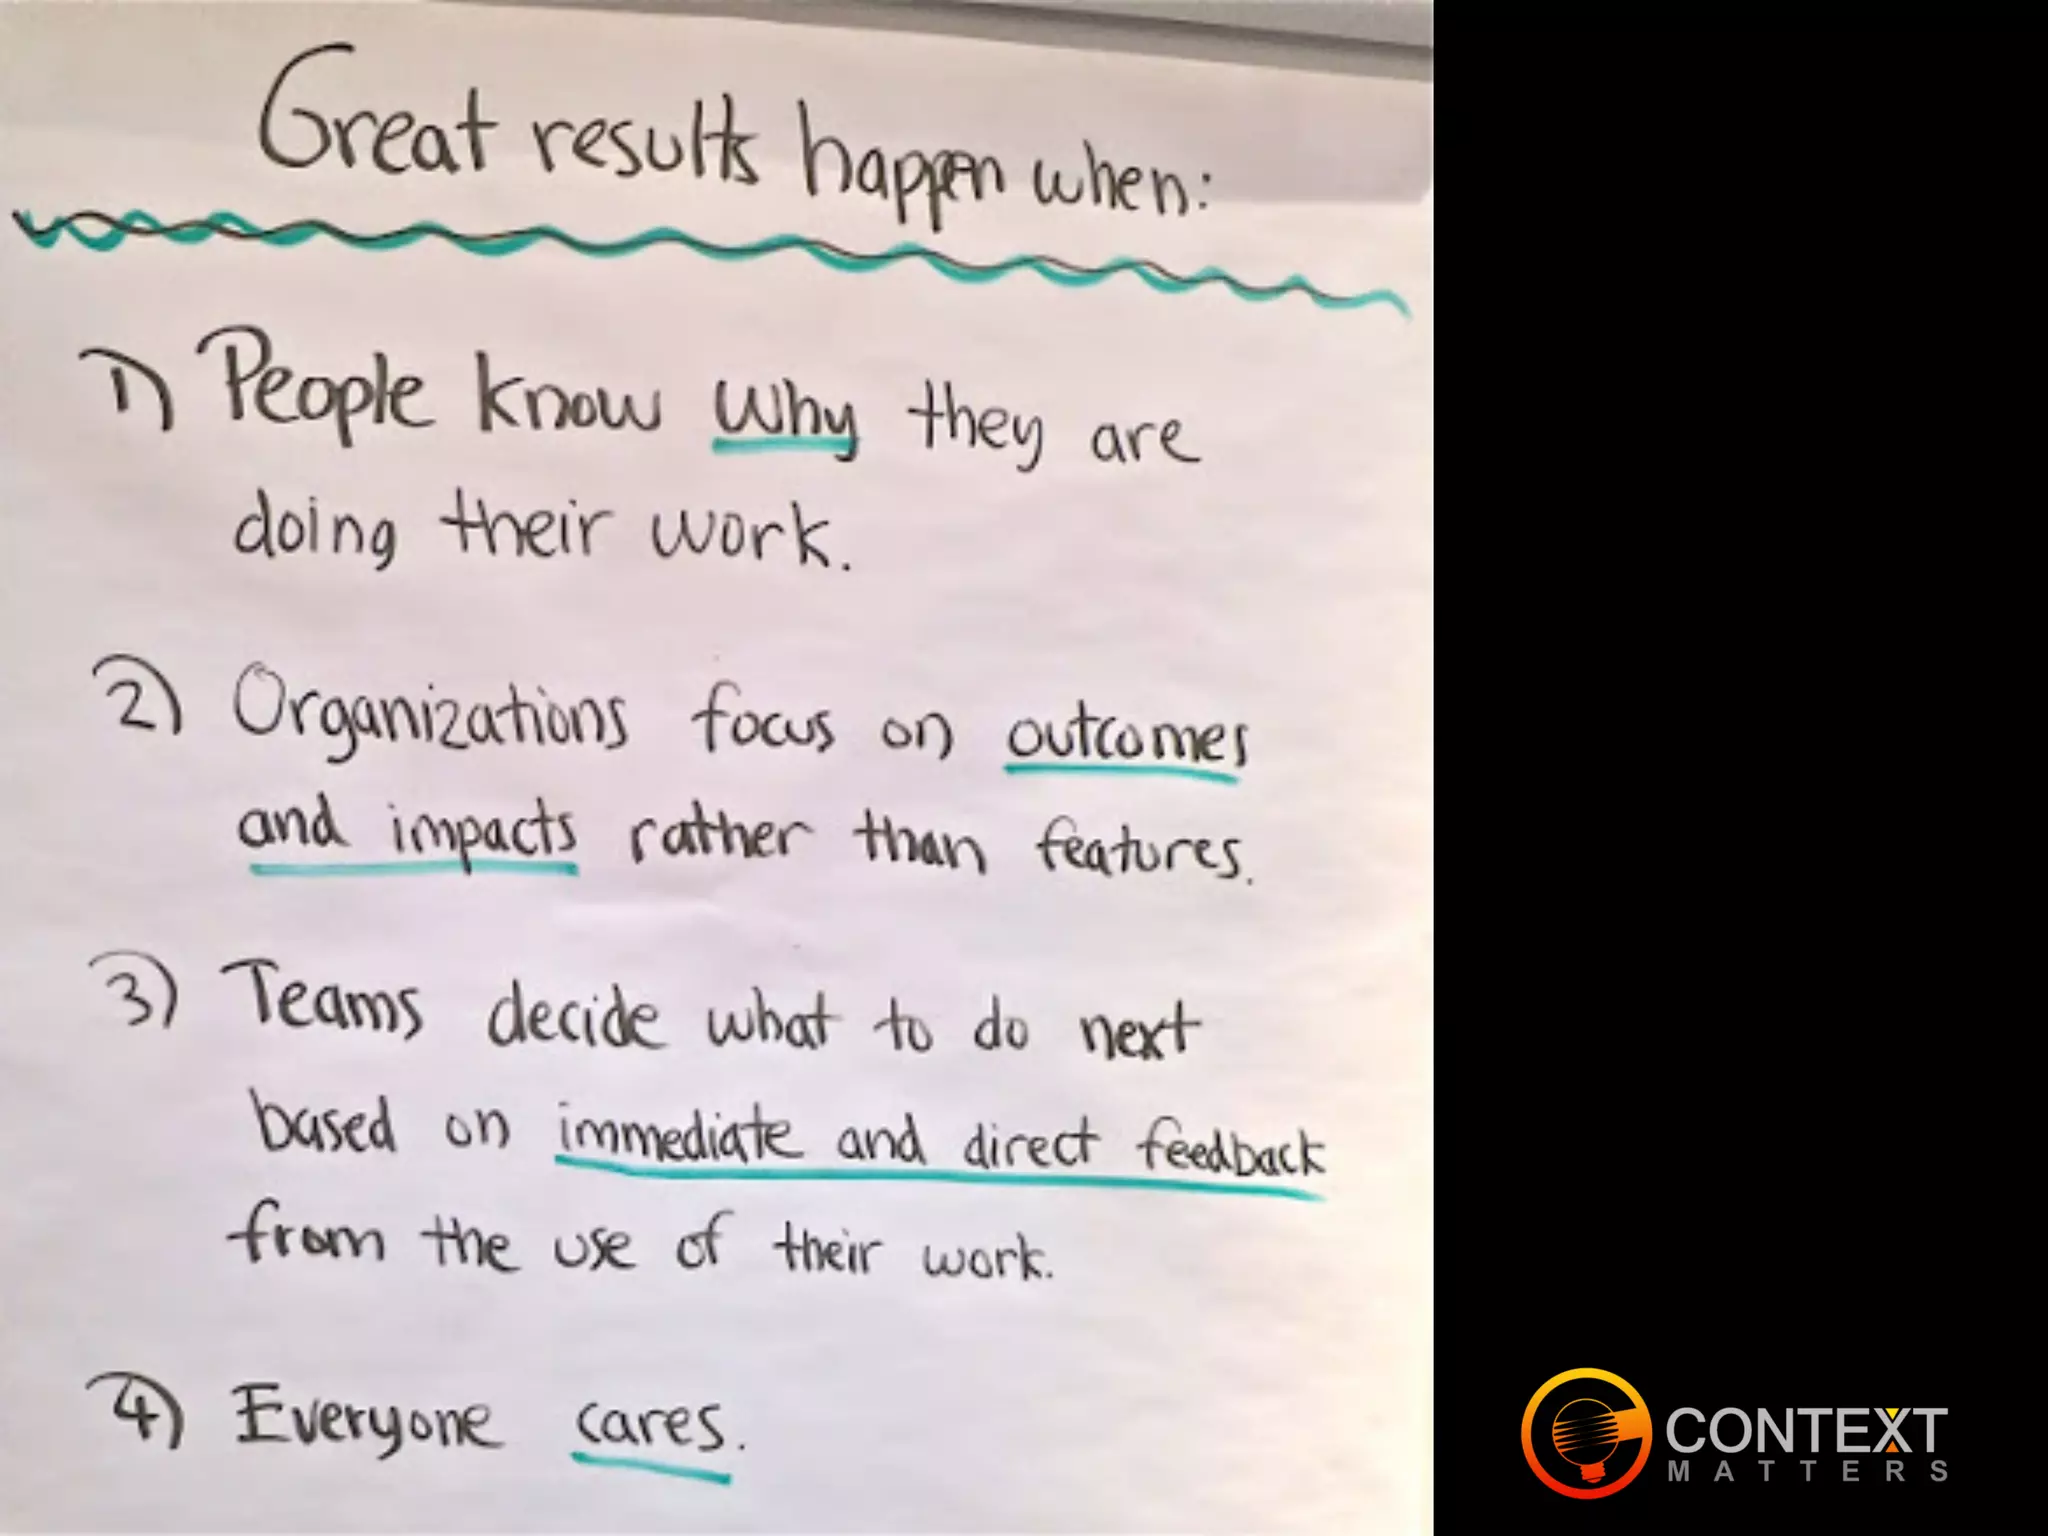 Great results happen when:
1) People know why they are
doing their work.
2) Organizations focus on outcomes
and impacts rather than features.
3) Teams decide what to do next
based on immediate and direct feedback
from the use of their work.
4) Everyone cares.
CONTEXT
MATTERS